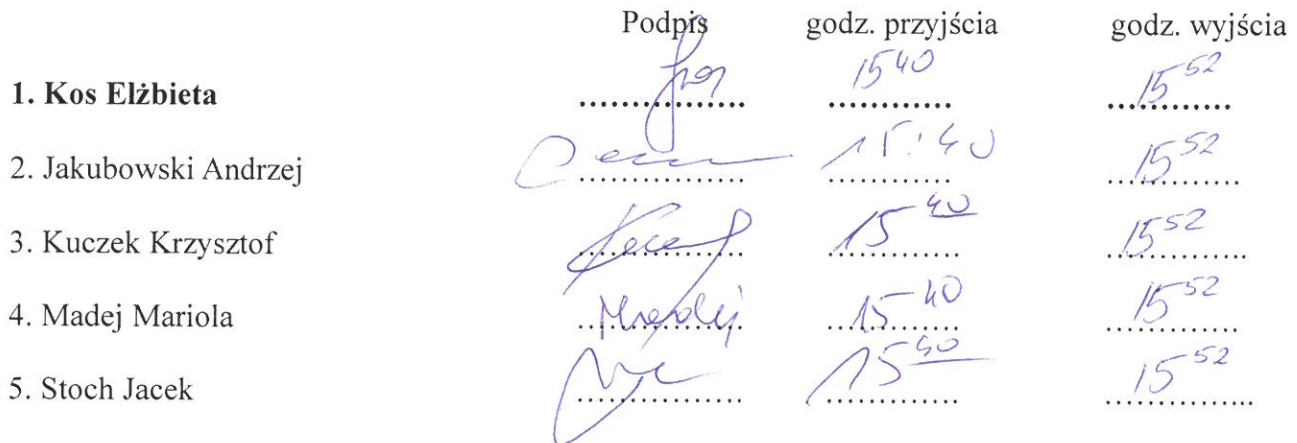 Podpis godz. przyjścia godz. wyjścia
1. Kos Elżbieta ................ 15 40 ........... 15 52 ...........
2. Jakubowski Andrzej ................ 15:40 ........... 15 52 ............
3. Kuczek Krzysztof ................ 15 40 ............ 15 52 .............
4. Madej Mariola ................ 15 40 ............ 15 52 ............
5. Stoch Jacek ................ 15 40 ............ 15 52 .............